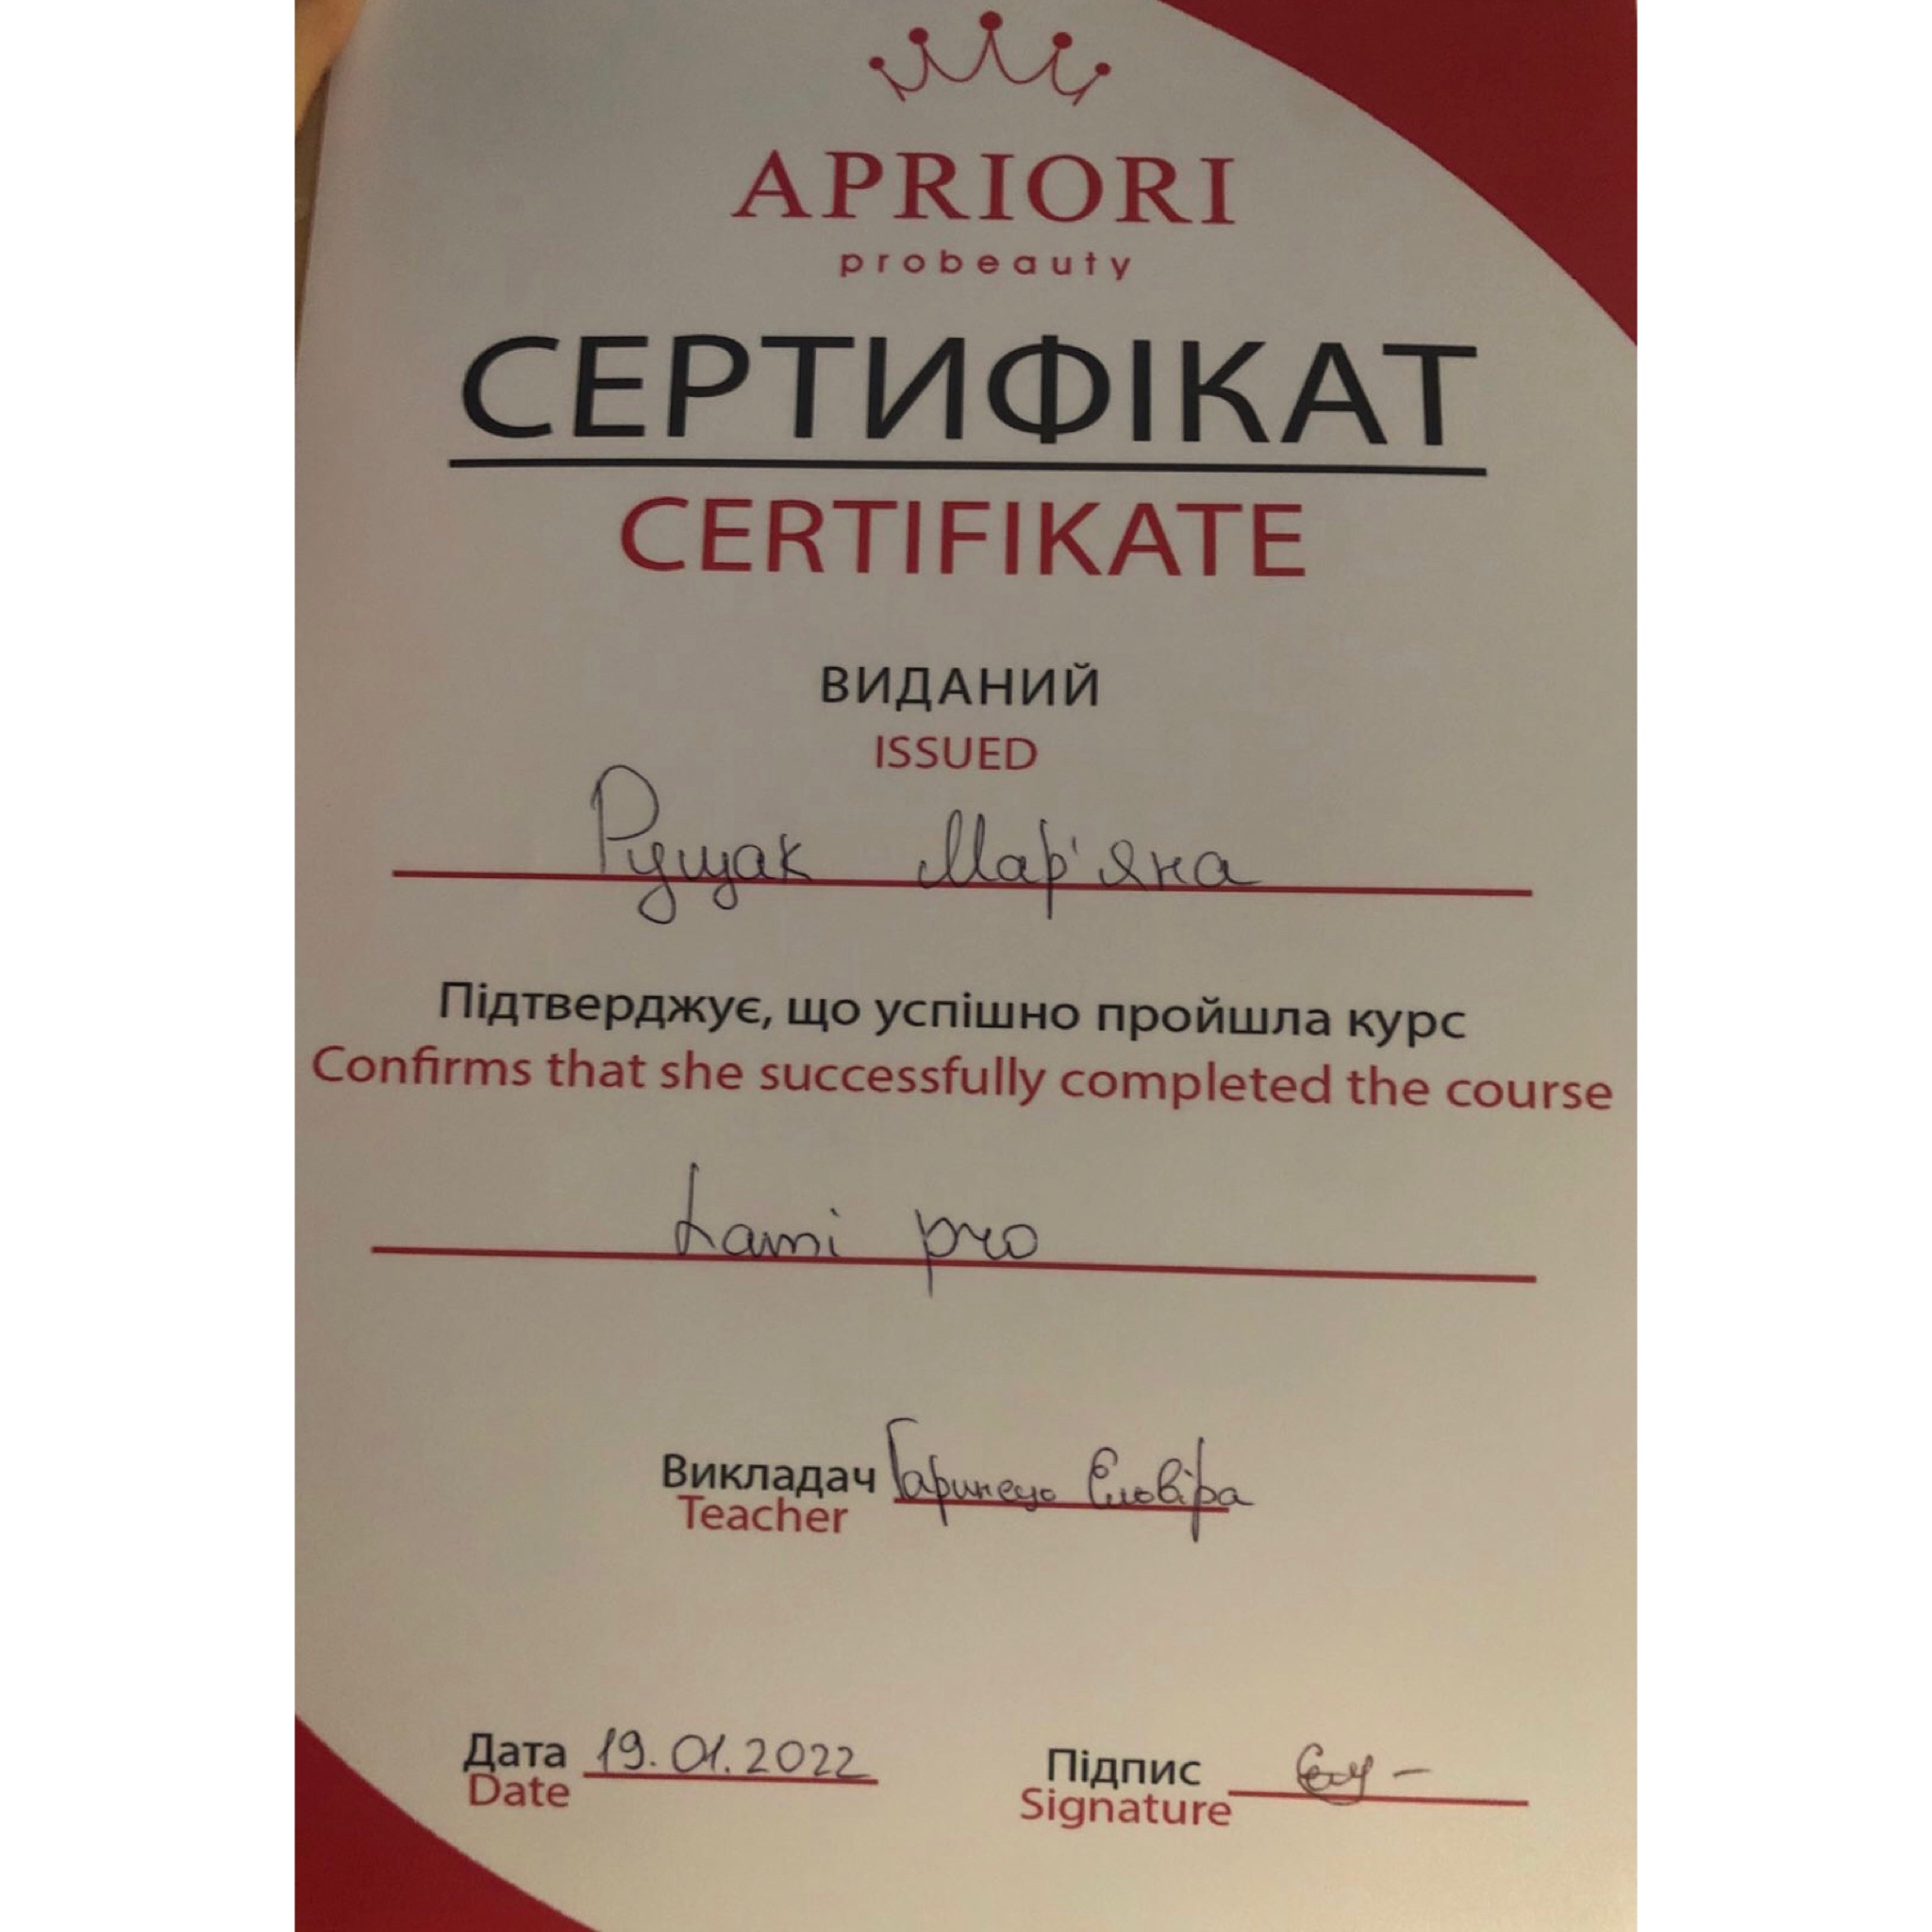 APRIORI
probeauty
СЕРТИФІКАТ
CERTIFIKATE
ВИДАНИЙ
ISSUED
Рущак Мар'яна
Підтверджує, що успішно пройшла курс
Confirms that she successfully completed the course
Lami pro
Викладач
Teacher
Дата 19.01.2022
Date
Підпис
Signature